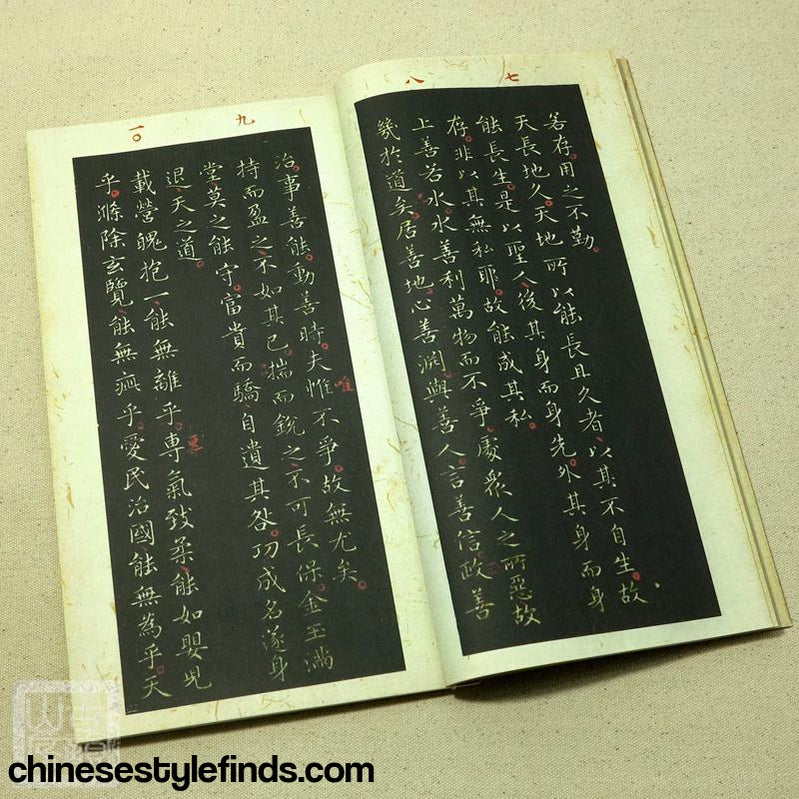 七
八
若存用之不勤。
天長地久。天地所以能長且久者、以其不自生。故
能長生。是以聖人、後其身而身先。外其身而身
存。非以其無私耶。故能成其私。
上善若水。水善利萬物而不爭。處衆人之所惡。故
幾於道矣。居善地。心善淵。與善人。言善信。政善
九
一〇
治。事善能。動善時。夫惟不爭。故無尤矣。
唯
持而盈之、不如其已。揣而銳之、不可長保。金玉滿
堂、莫之能守。富貴而驕、自遺其咎。功成名遂身
退、天之道。
載營魄抱一、能無離乎。專氣致柔、能如嬰兒
乎。滌除玄覽、能無疵乎。愛民治國、能無為乎。天
chinesestylefinds.com